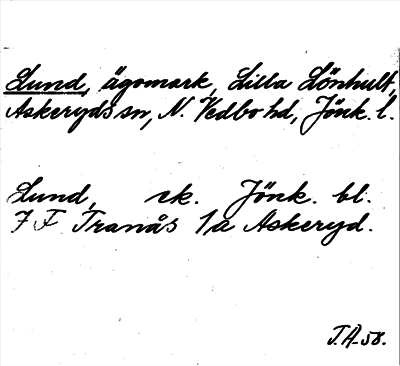 Lund, ägomark, Lilla Lönhult,
Askeryds sn, N. Vedbo hd, Jönk. l.
Lund, ek. Jönk. bl.
7 F Tranås 1a Askeryd.
J.A-58.